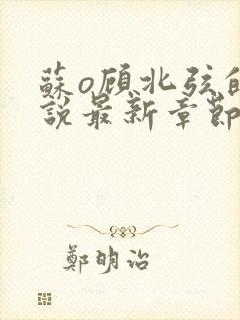 蘇o顾北弦的
說最新章節
鄭明治